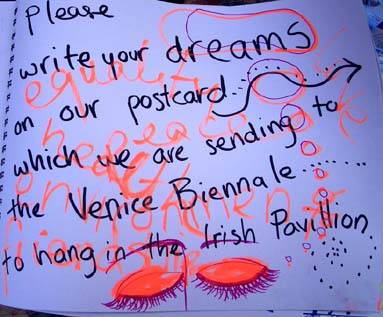 Please
write your dreams
on our postcard..
which we are sending to
the Venice Biennale
to hang in the Irish Pavillion